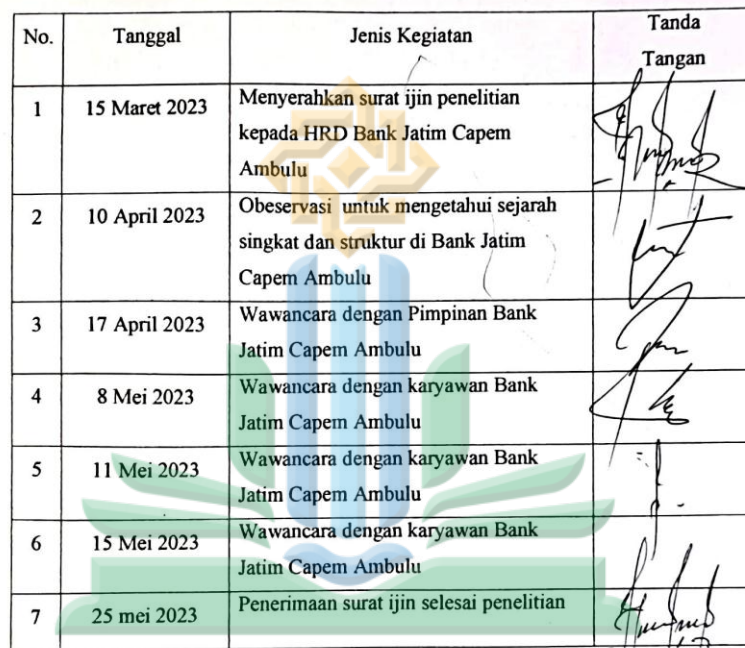 No. Tanggal Jenis Kegiatan Tanda
Tangan
1 15 Maret 2023 Menyerahkan surat ijin penelitian
kepada HRD Bank Jatim Capem
Ambulu
2 10 April 2023 Obeservasi untuk mengetahui sejarah
singkat dan struktur di Bank Jatim
Capem Ambulu
3 17 April 2023 Wawancara dengan Pimpinan Bank
Jatim Capem Ambulu
4 8 Mei 2023 Wawancara dengan karyawan Bank
Jatim Capem Ambulu
5 11 Mei 2023 Wawancara dengan karyawan Bank
Jatim Capem Ambulu
6 15 Mei 2023 Wawancara dengan karyawan Bank
Jatim Capem Ambulu
7 25 mei 2023 Penerimaan surat ijin selesai penelitian